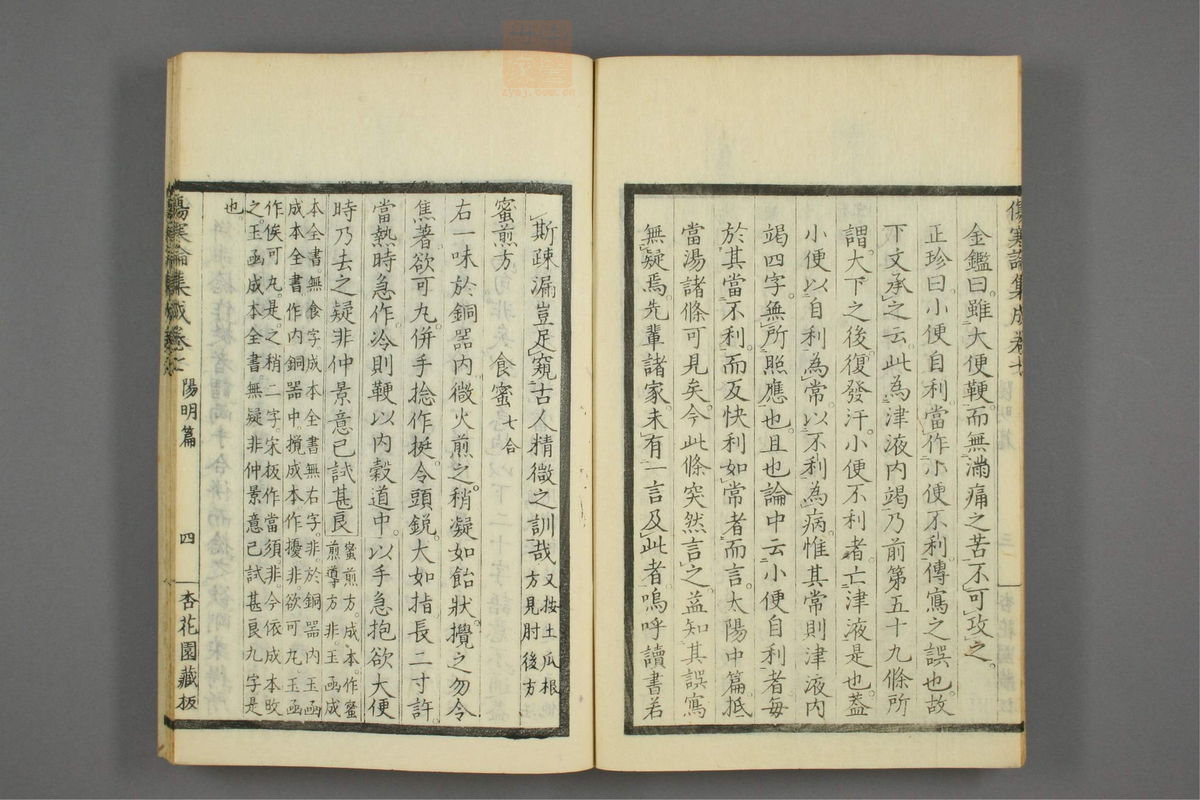 金鑑曰雖大便鞕而無滿痛之苦不可攻之
正珍曰小便自利當作小便不利傳寫之誤也故
下文承之云此為津液內竭乃前第五十九條所
謂大下之後復發汗小便不利者亡津液是也蓋
小便以自利為常以不利為病惟其常則津液內
竭四字無所照應也且也論中云小便自利者每
於其當不利而反快利如常者而言太陽中篇抵
當湯諸條可見矣今此條突然言之益知其誤寫
無疑焉先輩諸家未有一言及此者嗚呼讀書若
傷寒論集成卷七
斯疎漏豈足窺古人精微之訓哉又按土瓜根
方見肘後方
蜜煎方
食蜜七合
右一味於銅器內微火煎之稍凝如飴狀攪之勿令
焦著欲可丸併手捻作挺令頭銳大如指長二寸許
當熱時急作冷則鞕以內穀道中以手急抱欲大便
時乃去之疑非仲景意已試甚良蜜煎方成本作蜜
煎導方非玉函成
本全書無食字成本全書無右字非於銅器內玉函
成本全書作內銅器中攪成本作擾非欲可丸玉函
作俟可丸是之稍二字宋板作當須非今依成本改
之玉函成本全書無疑非仲景意已試甚良九字是
也
傷寒論集成卷七
陽明篇
四
杏花園藏板
zysj.com.cn